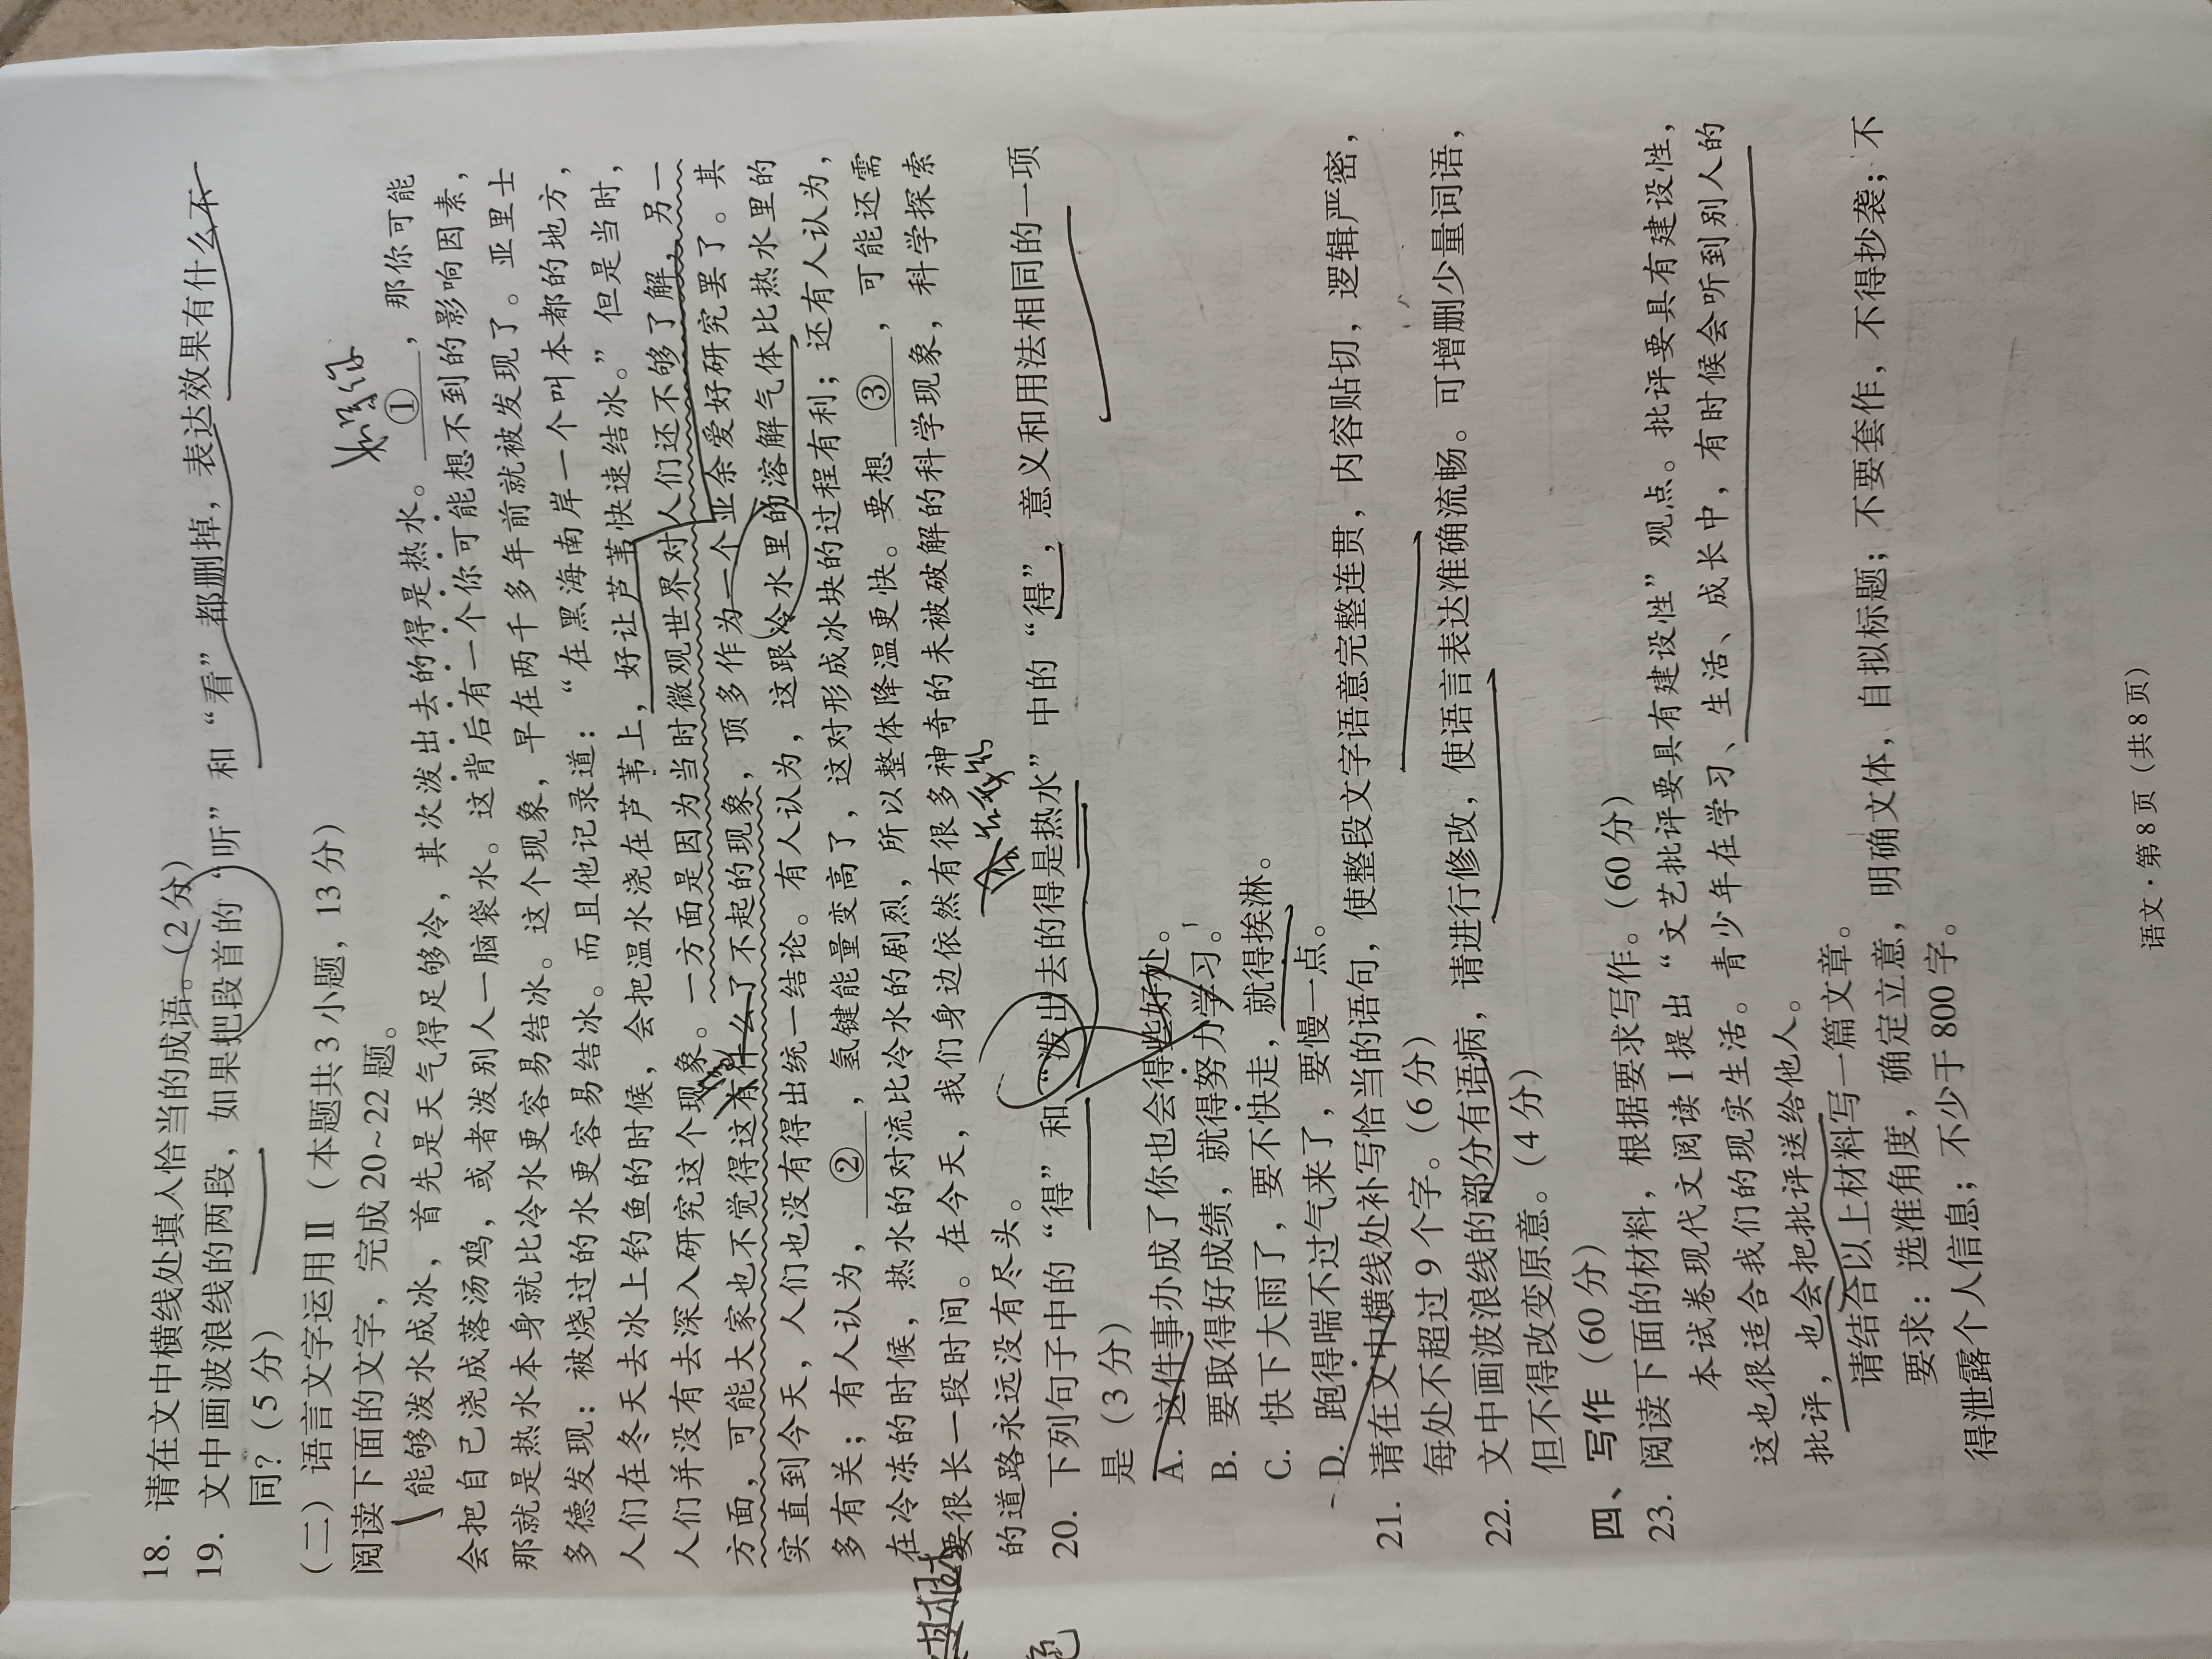 18. 请在文中横线处填入恰当的成语。(2 分)
19. 文中画波浪线的两段，如果把段首的“听”和“看”都删掉，表达效果有什么不
同？(5 分)
(二) 语言文字运用Ⅱ (本题共 3 小题，13 分)
阅读下面的文字，完成 20~22 题。
能够泼水成冰，首先是天气得足够冷，其次泼出去的得是热水。 ① ，那你可能
会把自己浇成落汤鸡，或者泼别人一脑袋水。这背后有一个你可能想不到的影响因素，
那就是热水本身就比冷水更容易结冰。这个现象，早在两千多年前就被发现了。亚里士
多德发现：被烧过的水更容易结冰。而且他记录道：“在黑海南岸一个叫本都的地方，
人们在冬天去冰上钓鱼的时候，会把温水浇在芦苇上，好让芦苇快速结冰。”但是当时，
人们并没有去深入研究这个现象。一方面是因为当时微观世界对人们还不够了解，另一
方面，可能大家也不觉得这有什么了不起的现象，顶多作为一个业余爱好研究罢了。其
实直到今天，人们也没有得出统一结论。有人认为，这跟冷水里的溶解气体比热水里的
多有关；有人认为， ② ，氢键能量变高了，这对形成冰块的过程有利；还有人认为，
在冷冻的时候，热水的对流比冷水的剧烈，所以整体降温更快。要想 ③ ，可能还需
要很长一段时间。在今天，我们身边依然有很多神奇的未被破解的科学现象，科学探索
的道路永远没有尽头。
20. 下列句子中的“得”和“泼出去的得是热水”中的“得”，意义和用法相同的一项
是 (3 分)
A. 这件事办成了你也会得些好处。
B. 要取得好成绩，就得努力学习。
C. 快下大雨了，要不快走，就得挨淋。
D. 跑得喘不过气来了，要慢一点。
21. 请在文中横线处补写恰当的语句，使整段文字语意完整连贯，内容贴切，逻辑严密，
每处不超过 9 个字。(6 分)
22. 文中画波浪线的部分有语病，请进行修改，使语言表达准确流畅。可增删少量词语，
但不得改变原意。(4 分)
四、写作 (60 分)
23. 阅读下面的材料，根据要求写作。(60 分)
本试卷现代文阅读 I 提出“文艺批评要具有建设性”观点。批评要具有建设性，
这也很适合我们的现实生活。青少年在学习、生活、成长中，有时候会听到别人的
批评，也会把批评送给他人。
请结合以上材料写一篇文章。
要求：选准角度，确定立意，明确文体，自拟标题；不要套作，不得抄袭；不
得泄露个人信息；不少于 800 字。
语文·第 8 页 (共 8 页)